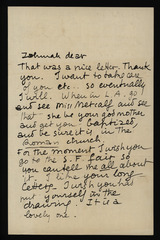 dear
That was a nice letter. Thank
you. I want to take care
of you etc.. so eventually
I will. When in L.A. go
and see Miss Metcalf and see
that she be your god mother
and get you baptized,
and be sure it is in the
Roman church
For the moment I wish you
go to the S.F. fair so
you can tell me all about
it. I like your long
letters. I wish you has
put yourself in the
drawing. It is a
lovely one.